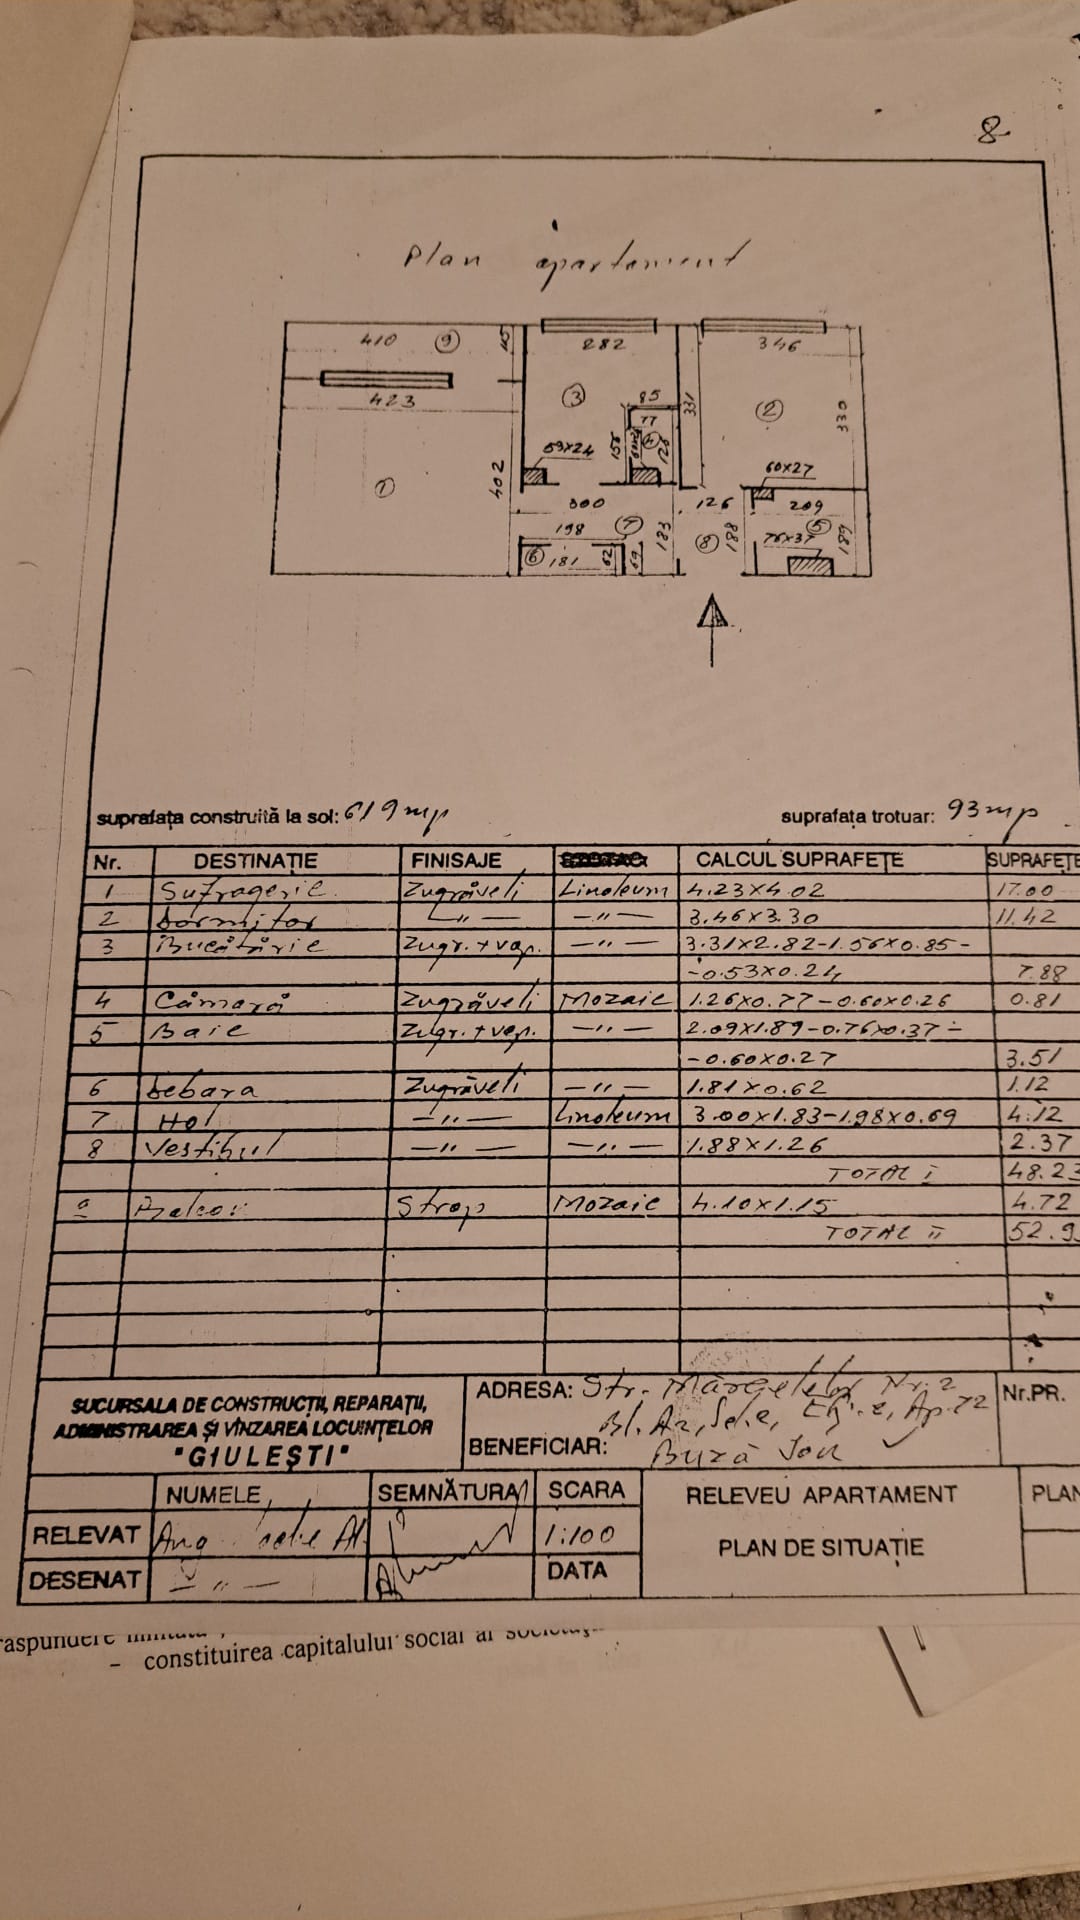 8
Plan apartament
410 9 115
282
346
423
3
85
77
331
2
330
4
156
60x26
126
53x24
402
60x27
1
300
126
209
198
7
183
8
188
76x37
5
189
6
181
62
69
suprafața construită la sol: 619 mp
suprafața trotuar: 93 mp
Nr. DESTINAȚIE FINISAJE CALCUL SUPRAFEȚE SUPRAFEȚE
1 Sufragerie Zugrăveli Linoleum 4.23x4.02 17.00
2 Dormitor —〃— —〃— 3.46x3.30 11.42
3 Bucătărie Zugr.+vop. —〃— 3.31x2.82-1.56x0.85-
-0.53x0.24 7.88
4 Cămară Zugrăveli Mozaic 1.26x0.77-0.60x0.26 0.81
5 Baie Zugr.+vop. —〃— 2.09x1.89-0.76x0.37-
-0.60x0.27 3.51
6 Debara Zugrăveli —〃— 1.81x0.62 1.12
7 Hol —〃— Linoleum 3.00x1.83-1.98x0.69 4.12
8 Vestibul —〃— —〃— 1.88x1.26 2.37
TOTAL I 48.23
9 Balcon Strop Mozaic 4.10x1.15 4.72
TOTAL II 52.9
SUCURSALA DE CONSTRUCȚII, REPARAȚII,
ADMINISTRAREA ȘI VÎNZAREA LOCUINȚELOR
"GIULEȘTI"
ADRESA: Str. Mărgelelor Nr. 2
Bl. A2, Sc. 2, Et. 2, Ap. 72
BENEFICIAR: Buză Ion
Nr.PR.
NUMELE SEMNĂTURA SCARA
RELEVAT 1:100
DESENAT —〃— DATA
RELEVEU APARTAMENT
PLAN DE SITUAȚIE
PLAN
raspundere limitata ;
- constituirea capitalului social al